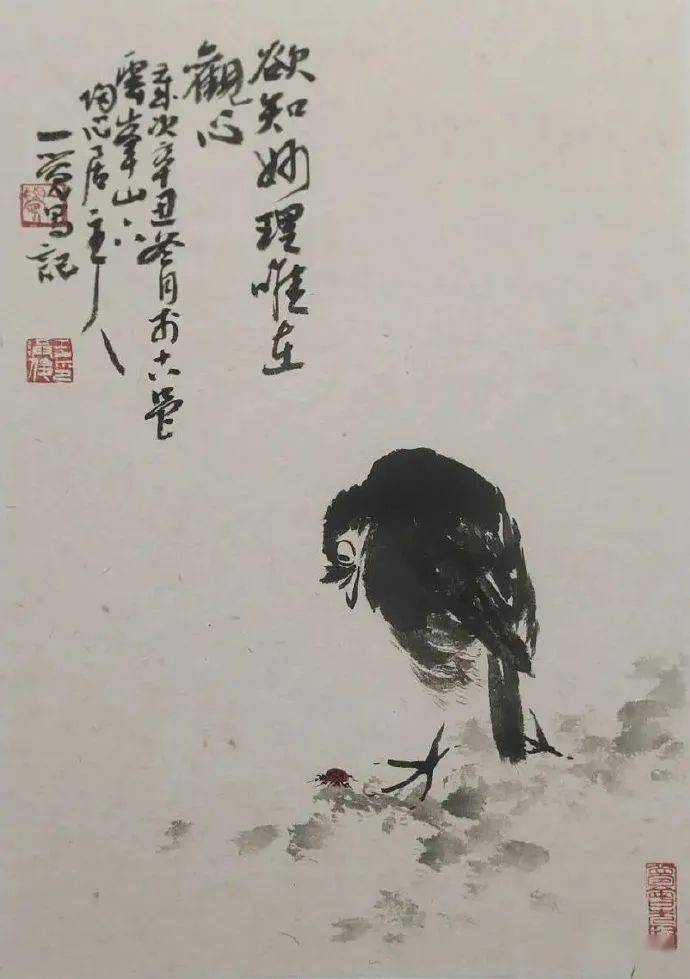 欲知妙理唯在
觀心
歲次辛丑 月於
雲峯山下
陶心居主人
一 寫記